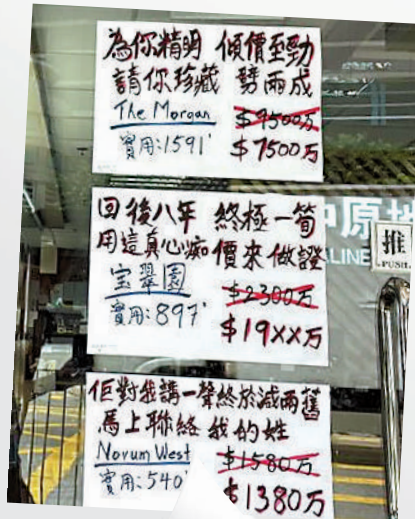 為你精明 傾價至勁
請你珍藏 劈兩成
The Morgan
$9500万
實用:1591'
$7500万
回後八年 終極一筍
用這真心痴 價來做證
宝翠園
$2300万
實用:897'
$19XX万
佢對我講一聲終於減兩舊
馬上聯絡我的姓
Novum West
$1580万
實用:540'
$1380万
中原地
ALINE
推
PUSH